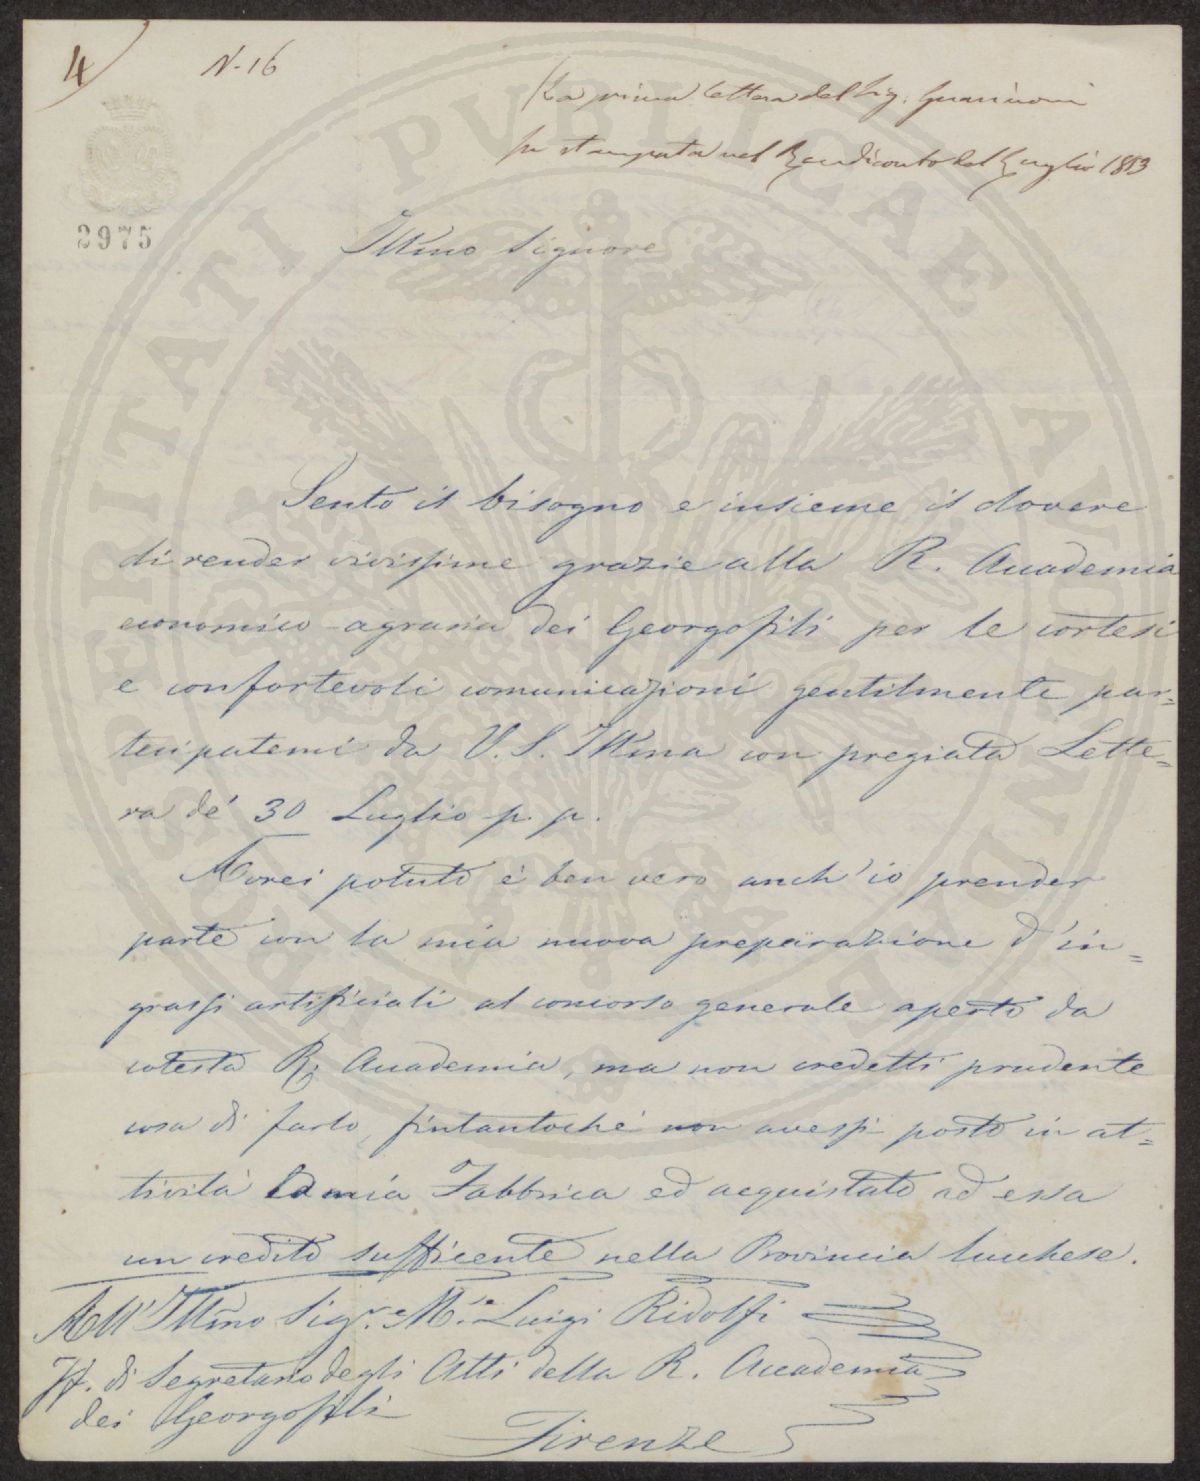 4) N. 16
La prima lettera del Sig. Guarinoni
fu stampata nel Rendiconto del Luglio 1873
2975
Illmo Signore
Sento il bisogno e insieme il dovere
di render vivissime grazie alla R. Accademia
economico-agraria dei Georgofili per le cortesi
e confortevoli comunicazioni gentilmente par=
tecipatemi da V. S. Illma con pregiata Lette=
ra de' 30 Luglio p. p.
Avrei potuto è ben vero anch'io prender
parte con la mia nuova preparazione d'in=
grassi artificiali al concorso generale aperto da
cotesta R. Accademia, ma non credetti prudente
cosa di farlo, fintantoché non avessi posto in at=
tività la mia Fabbrica ed acquistato ad essa
un credito sufficente nella Provincia lucchese.
All'Illmo Sigr. Mse. Luigi Ridolfi
ff. di Segretario degli Atti della R. Accademia
dei Georgofili
Firenze